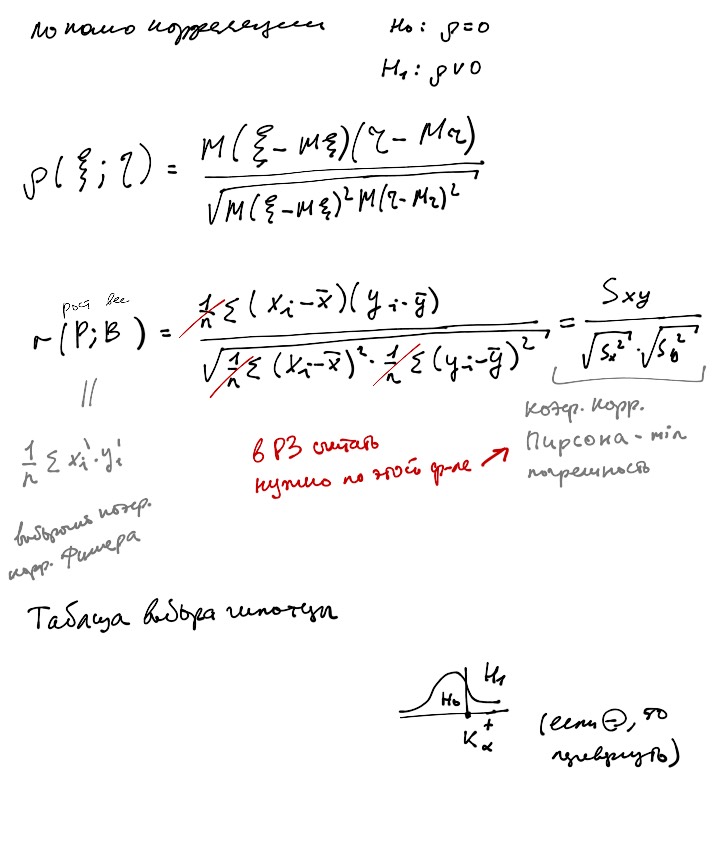 корреляции H₀: ρ=0
H₁: ρ∨0
ρ(ξ; η) = M(ξ - Mξ)(η - Mη) / √(M(ξ-Mξ)² M(η-Mη)²)
рост вес
r(P; B) = 1/n Σ(xᵢ - x̄)(yᵢ - ȳ) / √(1/n Σ(xᵢ - x̄)² · 1/n Σ(yᵢ - ȳ)²) = Sxy / (√Sₓ² · √S²)
||
1/n Σ xᵢ' · yᵢ'
выборочн коэф.
корр. Фишера
в РЗ считать
нужно по этой ф-ле
коэф. корр.
Пирсона - min
погрешность
Таблица выбора гипотезы
H₀ H₁
K α +
(если ⊖, то
перевернуть)